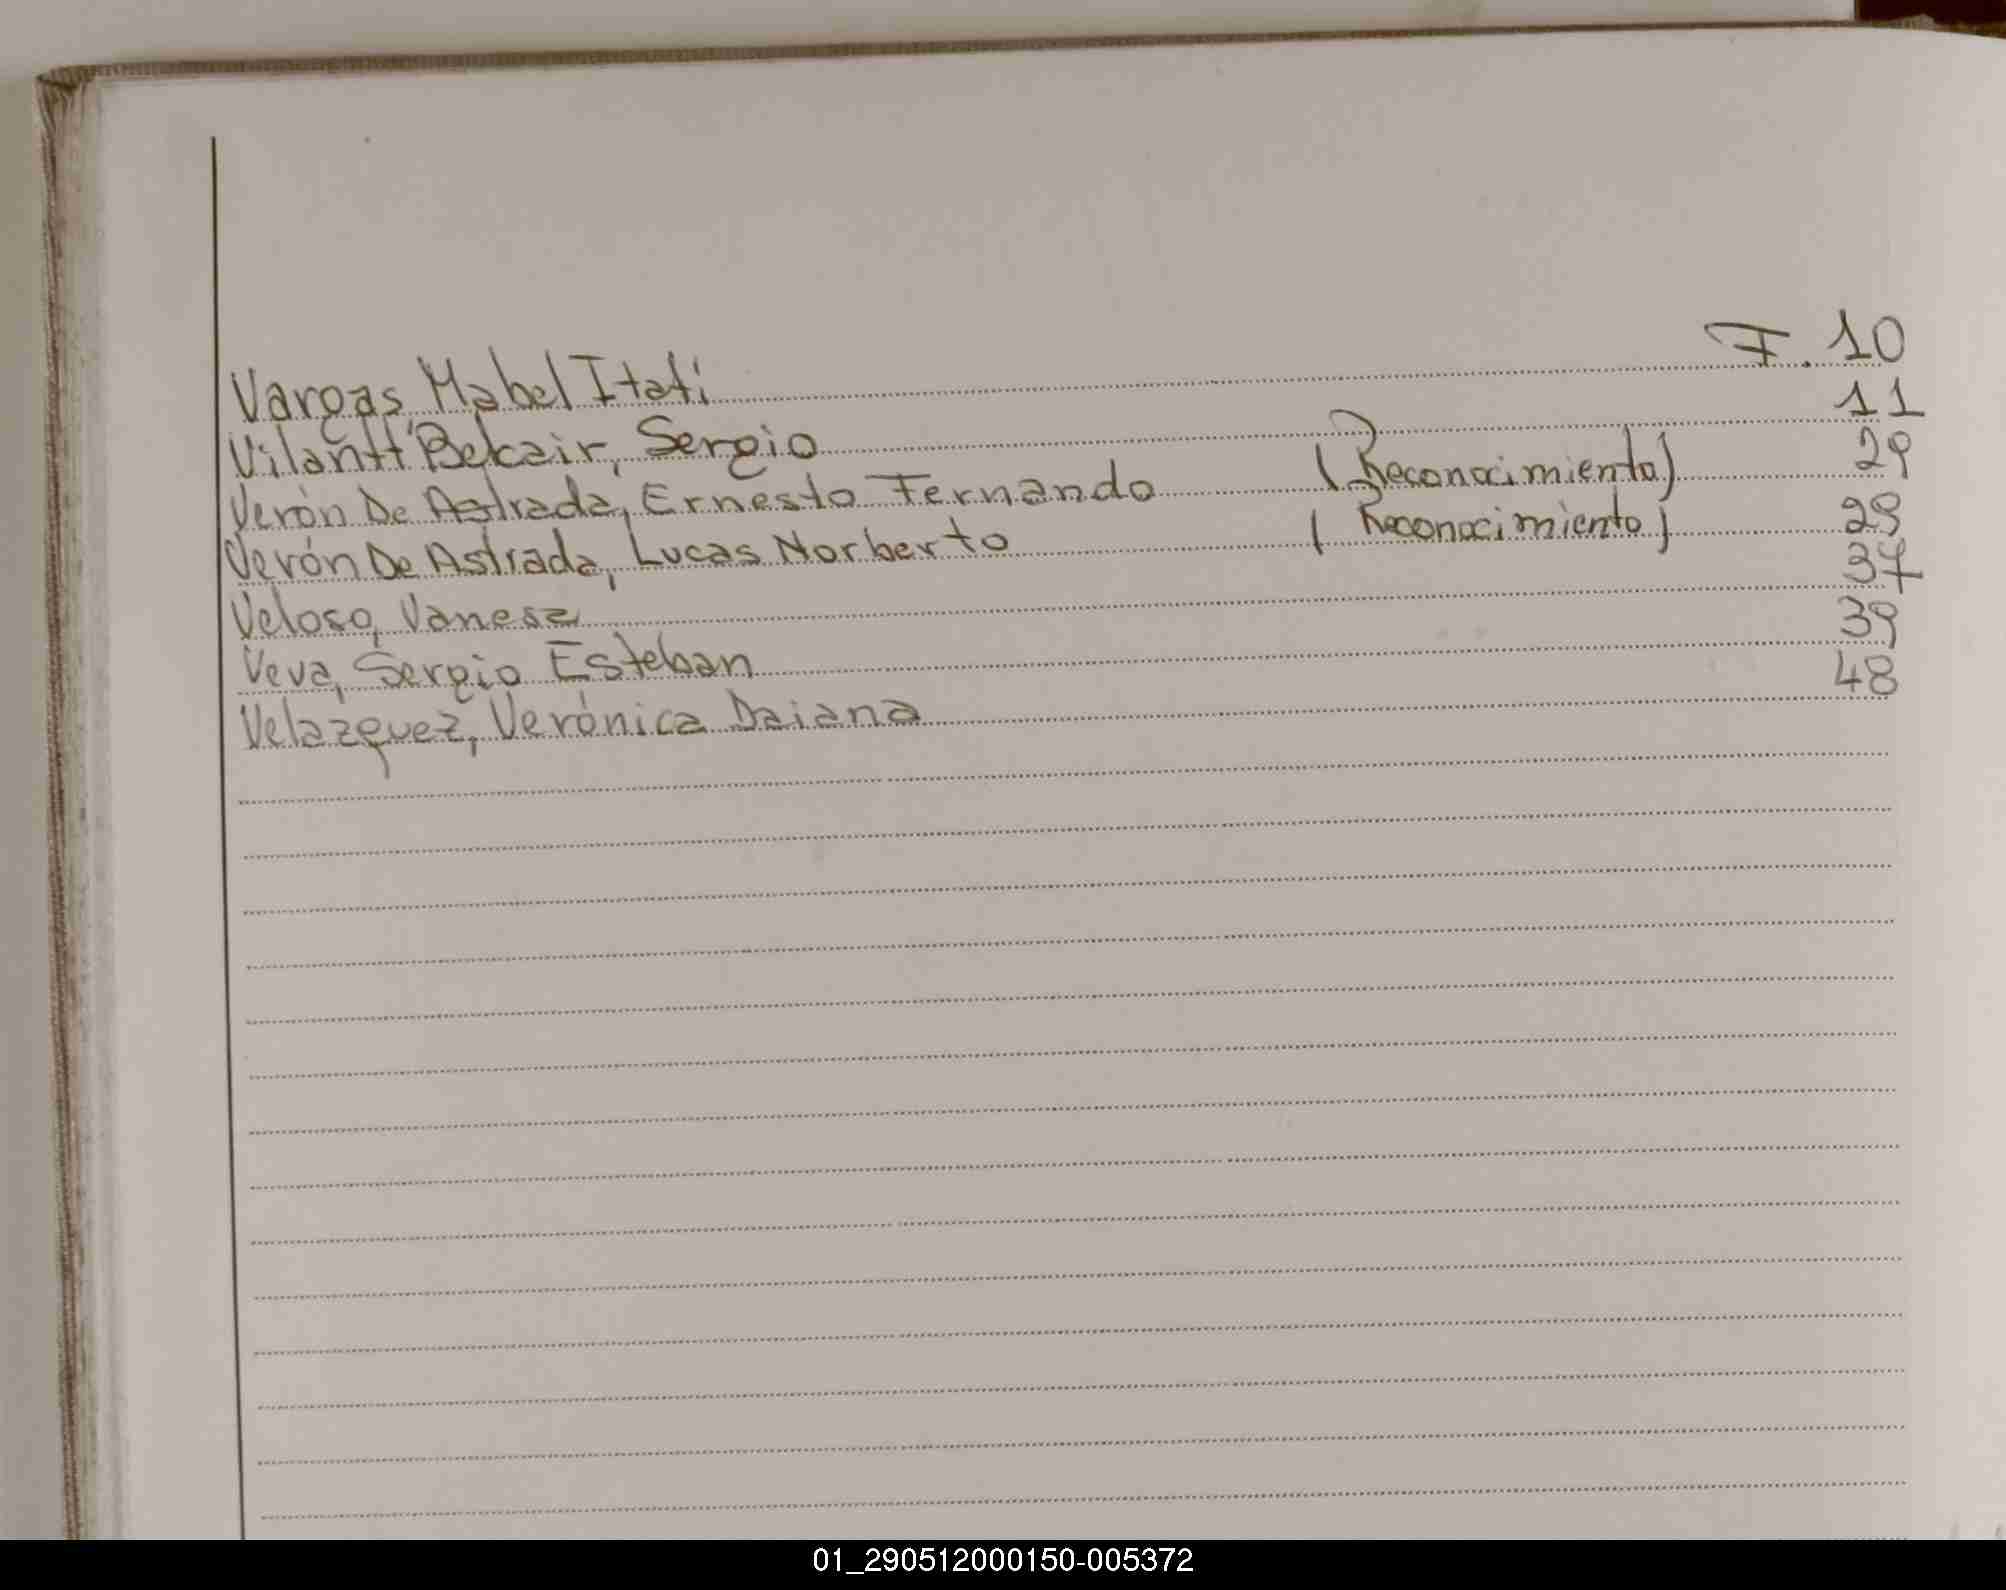 Vargas, Mabel Itatí F. 10
Vilantt Bekair, Sergio 11
Verón De Astrada, Ernesto Fernando (Reconocimiento) 29
Verón De Astrada, Lucas Norberto (Reconocimiento) 29
Veloso, Vanesa 37
Veva, Sergio Esteban 39
Velazquez, Verónica Daiana 48
01_290512000150-005372